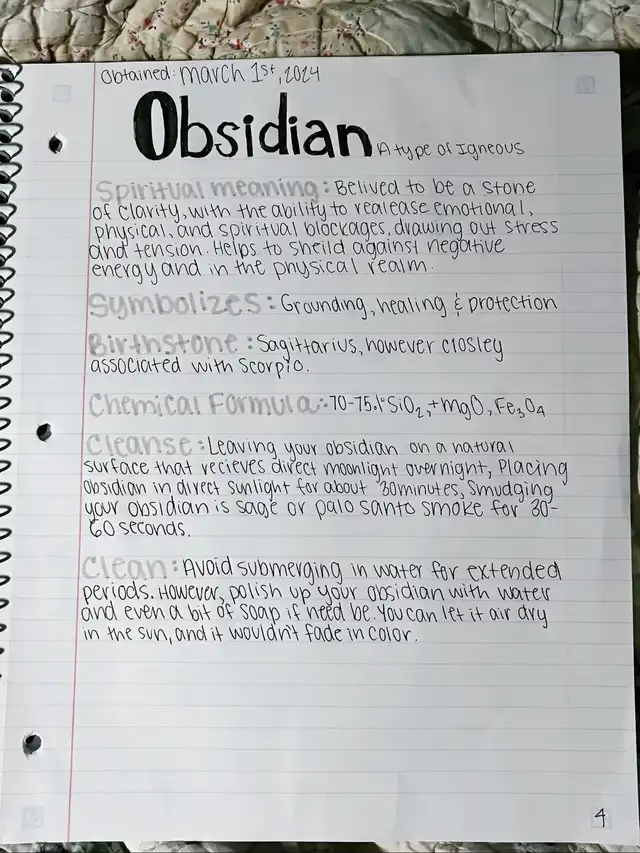 Obtained: March 1st, 2024
Obsidian A type of Igneous
Spiritual meaning: Belived to be a stone
of clarity, with the ability to realease emotional,
physical, and spiritual blockages, drawing out stress
and tension. Helps to sheild against negative
energy and in the physical realm.
Symbolizes: Grounding, healing & protection
Birthstone: Sagittarius, however closley
associated with Scorpio.
Chemical Formula: 70-75% SiO₂, + MgO, Fe₃O₄
Cleanse: Leaving your obsidian on a natural
surface that recieves direct moonlight overnight, Placing
obsidian in direct sunlight for about 30minutes, Smudging
your obsidian is sage or palo santo smoke for 30-
60 seconds.
Clean: Avoid submerging in water for extended
periods. However, polish up your obsidian with water
and even a bit of soap if need be. You can let it air dry
in the sun, and it wouldn't fade in color.
4